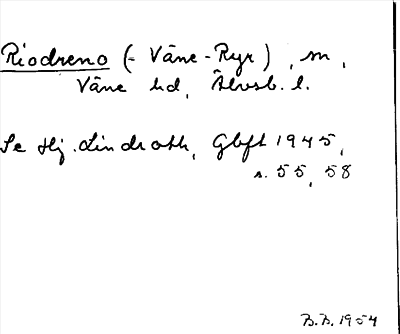 Riodreno (= Väne-Ryr), sn,
Väne hd, Älvsb. l.
Se Hj. Lindroth, Gbgft 1945,
s. 55, 58
B.B. 1954